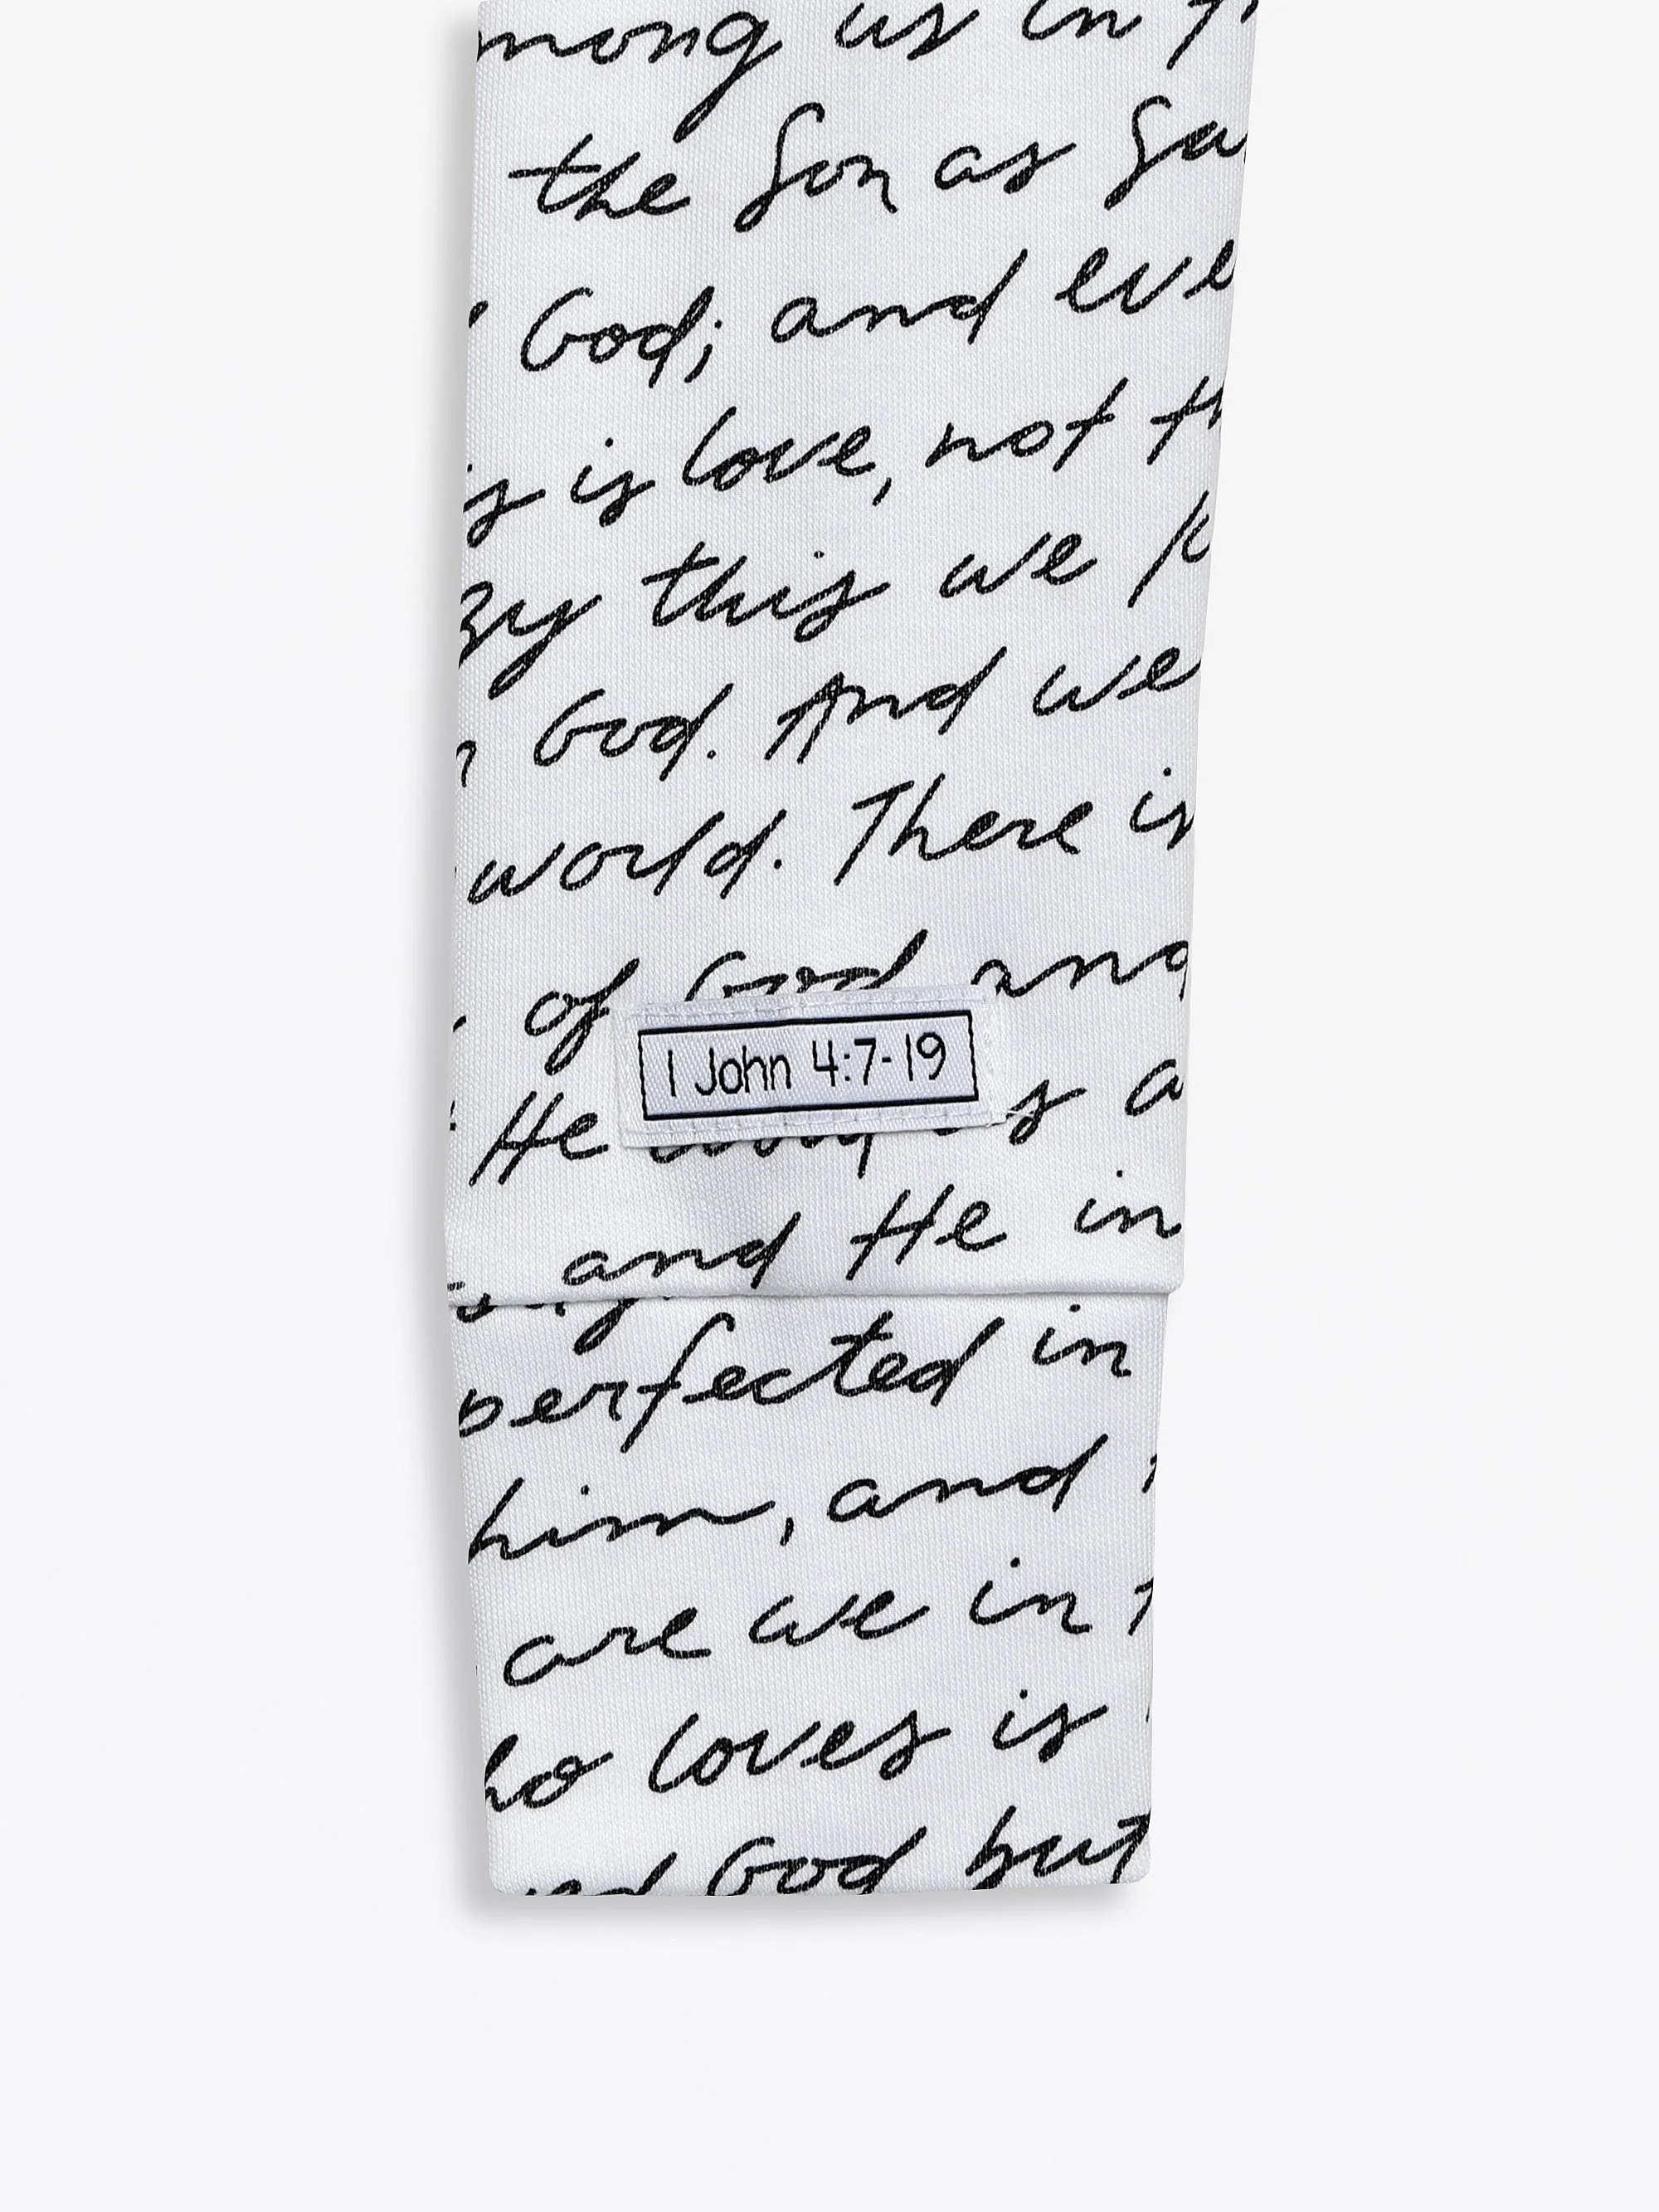 among us in
the Son as
God; and
is love, not
By this we
God. And we
world. There is
of God and
1 John 4:7-19
He
and He in
perfected in
him, and
are we in
loves is
God but